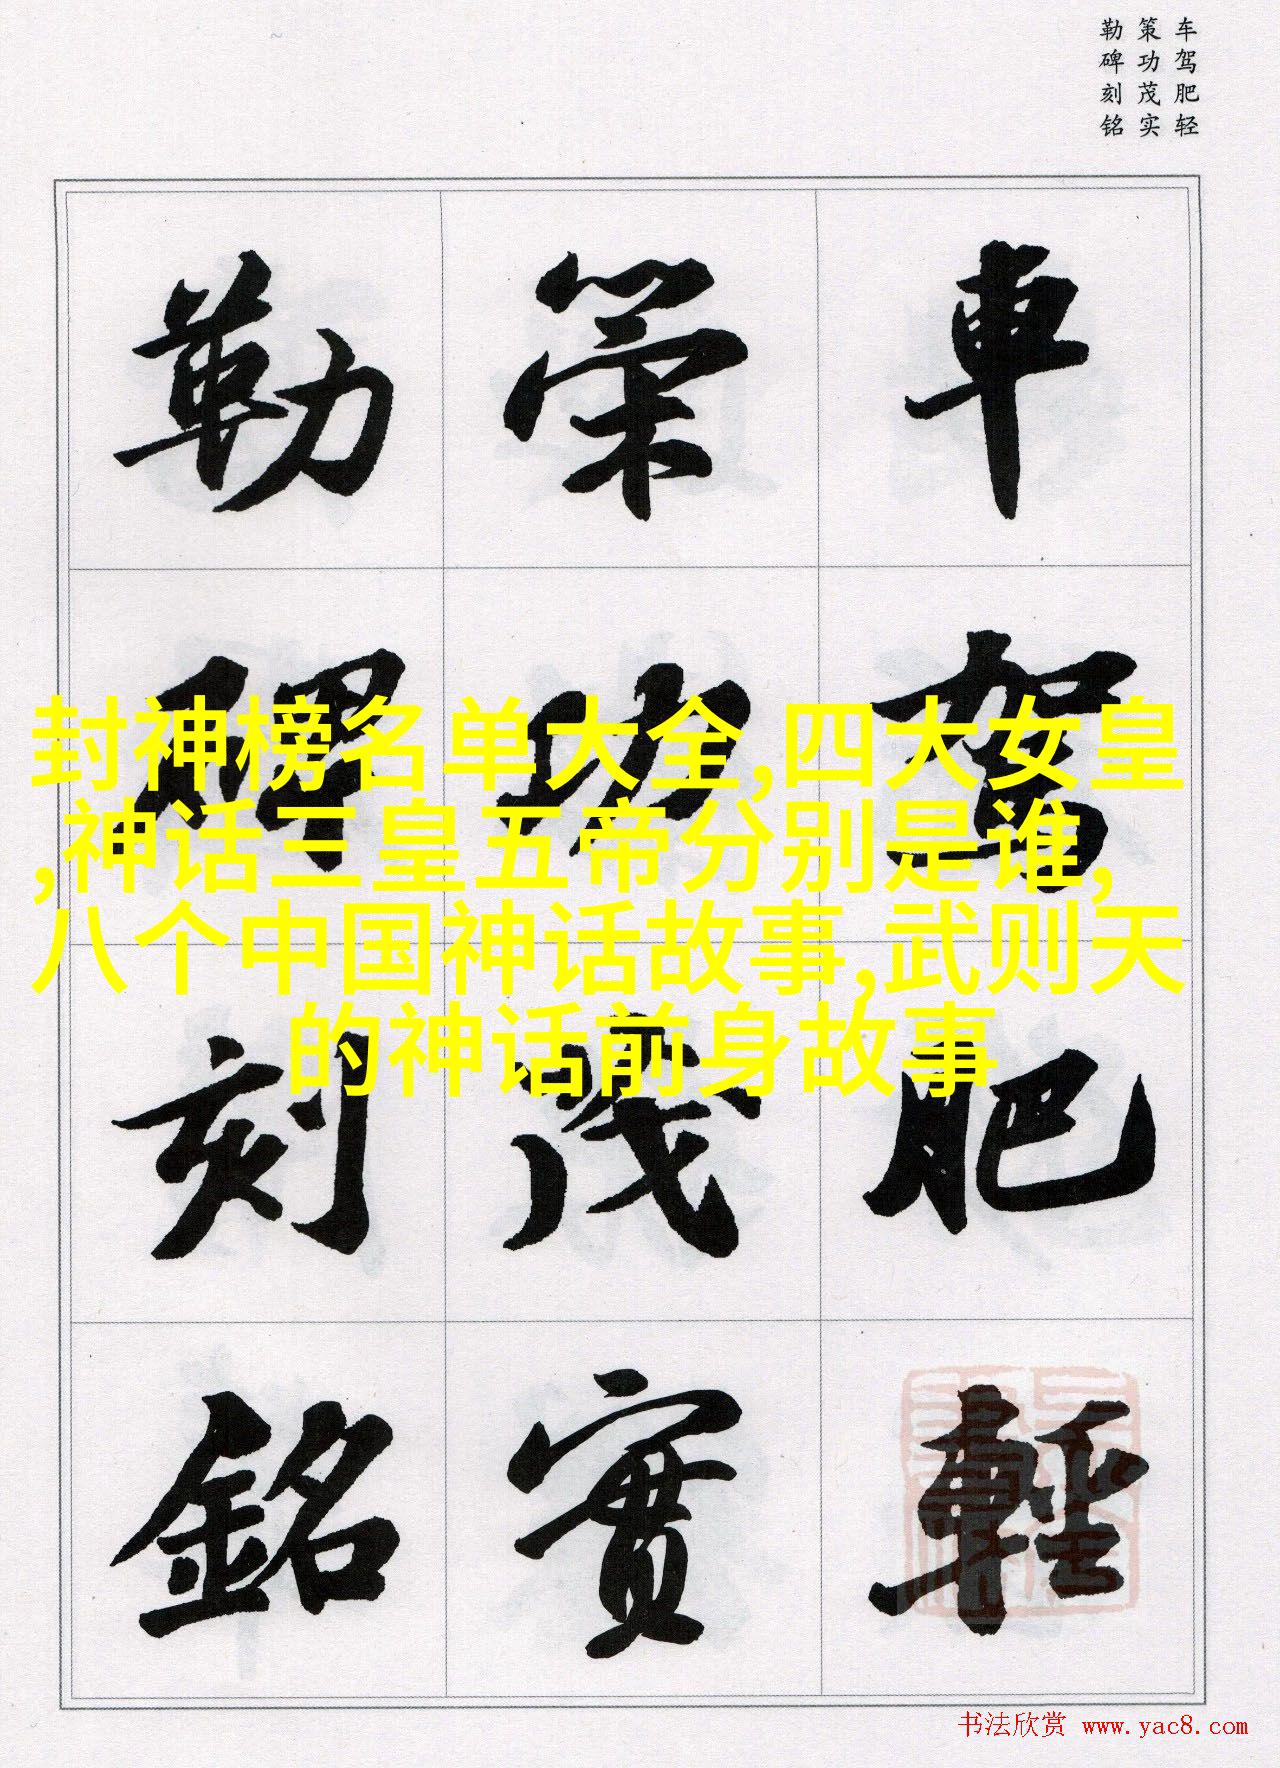 车驾肥轻
策功茂实
勒碑刻铭
車駕肥輕
策功茂實
勒碑刻銘
封神榜名单大全,四大女皇
,神话三皇五帝分别是谁,
八个中国神话故事,武则天
的神话前身故事
书法欣赏 www.yac8.com